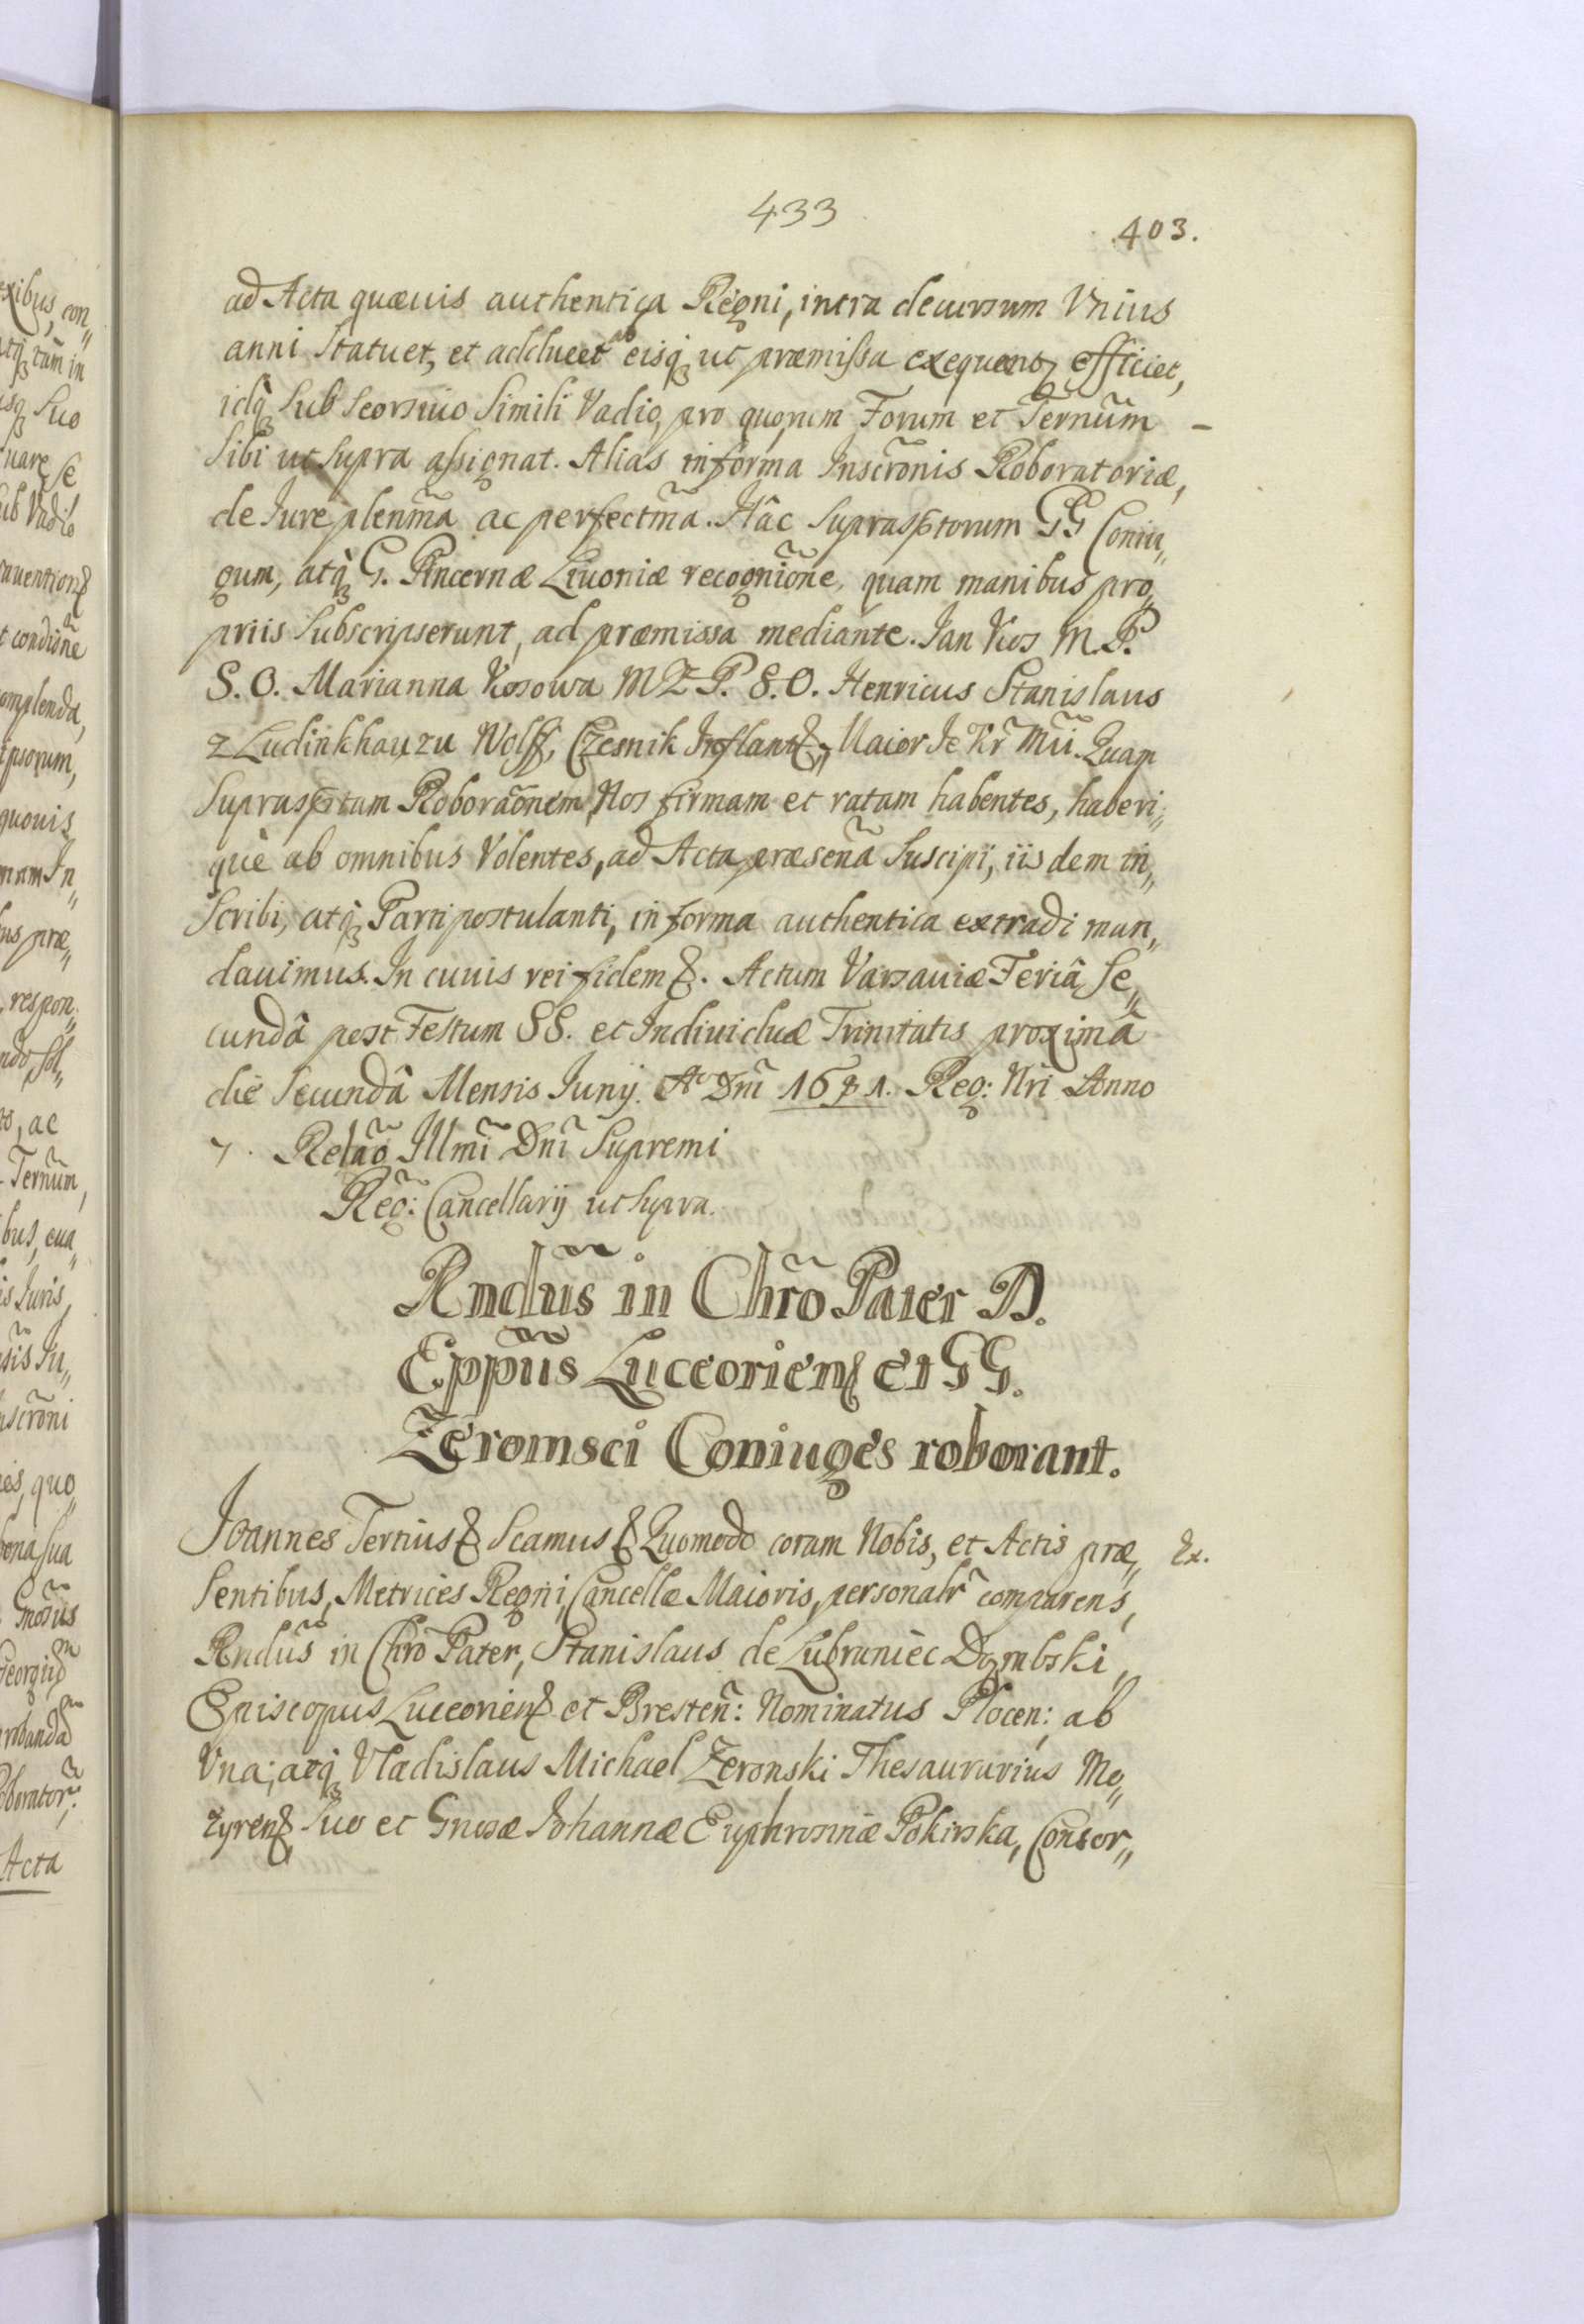 433
403.
ad Acta quæuis authentica Regni, intra decursum Vnius
anni Statuet, et adducet ab eisq₃ ut præmissa exequent₂ efficiet,
idq₃ Sub Seorsiuo Simili Vadio, pro quorum Forum et Ternũm –
Sibi ut Supra assignat. Alias in forma Inscr̃onis Roboratoriæ,
de Iure pleñma ac perfect̃ma. Hâc Suprasptorum GG Coniu„
gum, atq₃ G. Pincernæ Liuoniæ recognic̃one, quam manibus pro„
priis Subscripserunt, ad præmissa mediante. Jan Kos M. P.
S. O. Marianna Kosowa M Z P. S. O. Henricus Stanislaus
z Ludinkhauzu Wolff, Czesnik Inflant&, Maior Je Kr̃ Mci. Quam
Supraspt̃am Roborãonem Nos firmam et ratam habentes, haberi„
què ab omnibus Volentes, ad Acta præseña Suscipi, iisdem in„
Scribi, atq₃ Parti postulanti, in forma authentica extradi man„
dauimus. In cuius rei fidem &. Actum Varsauiæ Feriâ Se„
cundâ post Festum SS. et Indiuiduæ Trinitatis proximâ
die Secundâ Mensis Iunij. Aº Dñi 1681. Reg: Nri Anno
7. Relão Illm̃i Dñi Supremi
Reg: Cancellarij ut Supra.
Rndũs in Chrõ Pater D.
Eppũs Luceorien& et GG.
Zeromsci Coniuges roborant.
Joannes Tertius & Scamus & Quomodo coram Nobis, et Actis præ„ Ex.
Sentibus, Metrices Regni, Cancellæ Maioris, personalr̃ comparens,
Rndũs in Chrõ Pater, Stanislaus de Lubraniec Dąmbski,
Episcopus Luceorien& et Bresteñ: Nominatus Plocen: ab
Vna; atq₃ Vladislaus Michael Zeronski Thesaurarius Mo„
zyren& Suo et Gnosæ Johannæ Euphrosinæ Pokirska, Consor„